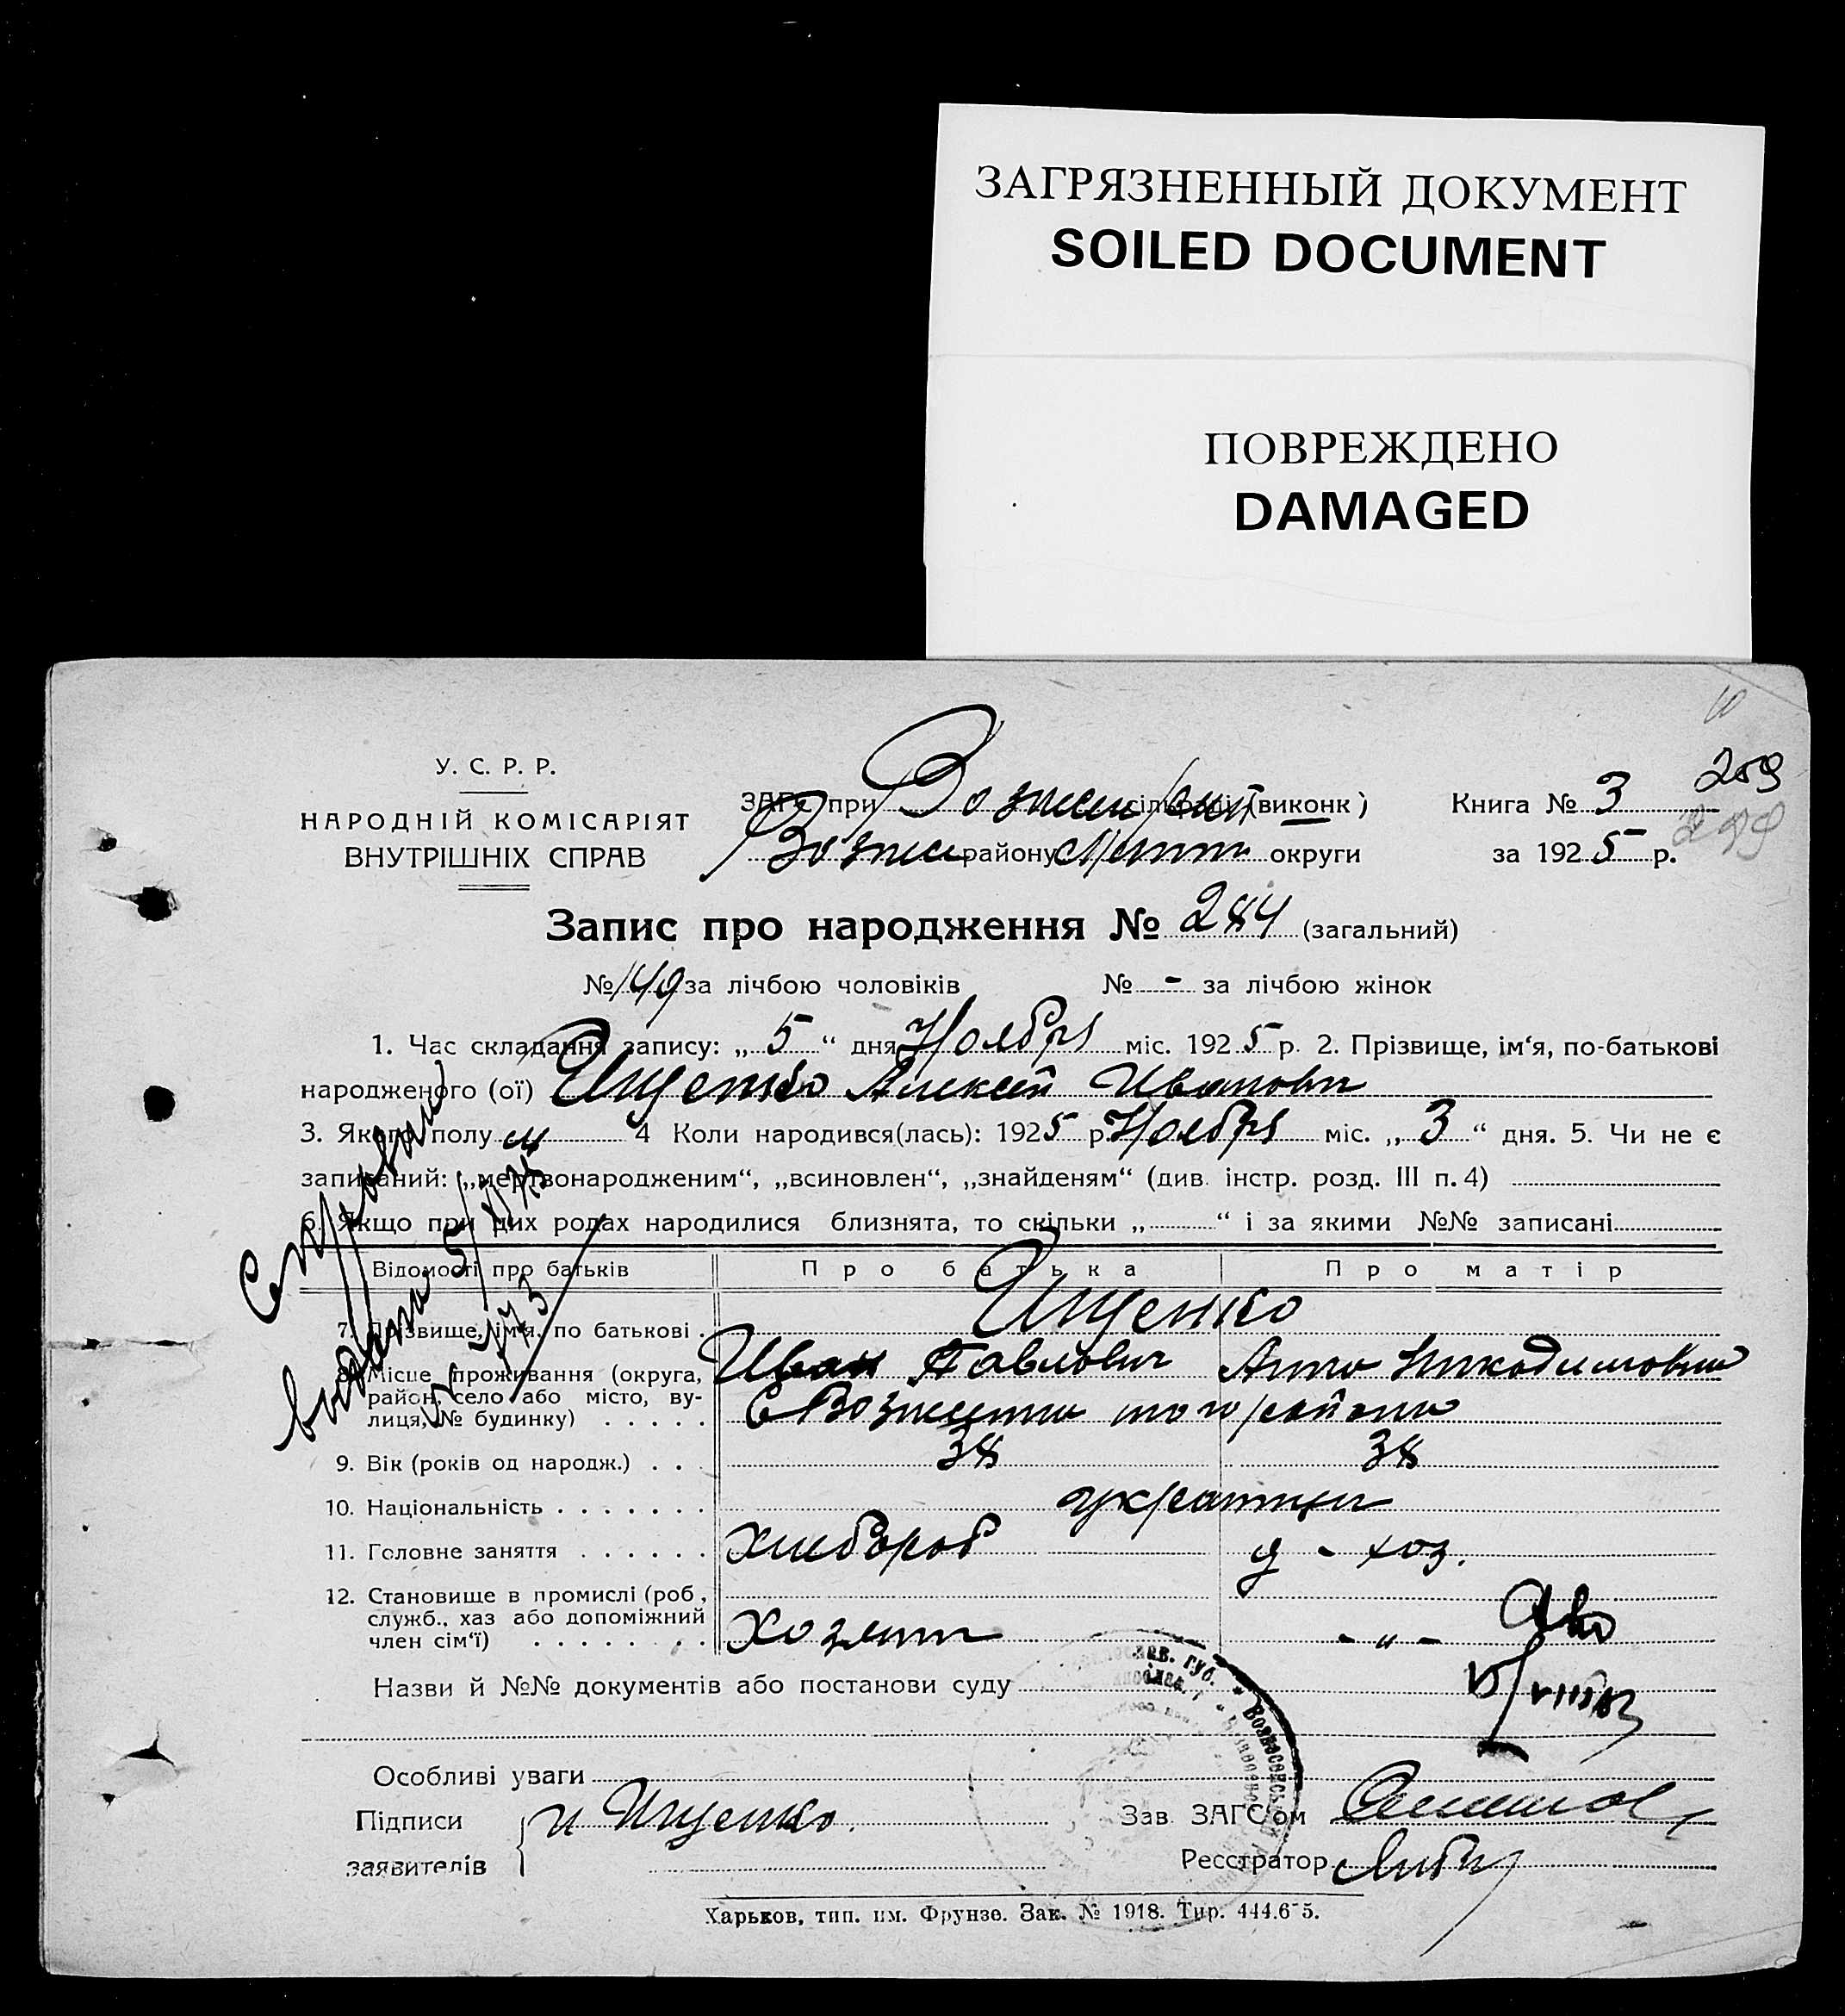 ЗАГРЯЗНЕННЫЙ ДОКУМЕНТ
SOILED DOCUMENT
ПОВРЕЖДЕНО
DAMAGED
У. С. Р. Р.
НАРОДНІЙ КОМІСАРІЯТ
ВНУТРІШНІХ СПРАВ
ЗАГС при сільраді (виконк)
района округи
Книга № 3
259
за 1925 р.
Запис про народження № 284 (загальний)
№ 149 за лічбою чоловіків № - за лічбою жінок
1. Час складання запису: „ 5 “ дня Ноября міс. 1925 р. 2. Прізвище, ім‘я, по-батькові
народженого (ої) Ищенко Алексей Иванович
3. Якого полу м 4 Коли народився(лась): 1925 р. Ноября міс. „ 3 “ дня. 5. Чи не є
записаний: „мертвонародженим“, „всиновлен“, „знайденям“ (див. інстр. розд. III п. 4)
6. Якщо при цих родах народилися близнята, то скільки „ “ і за якими №№ записані
Відомості про батьків Про батька Про матір
7. Прізвище, ім‘я, по батькові . Ищенко
Иван Павлович Анна Никодимовна
8. Місце проживання (округа,
район, село або місто, ву-
лиця, № будинку) . . . . .
9. Вік (років од народж.) . . . 38 38
10. Національність . . . . . . . украинцы
11. Головне заняття . . . . . . Хлебороб д - хоз.
12. Становище в промислі (роб.,
служб., хаз або допоміжний
член сім‘ї) . . . . . . . Хозяин - „ -
Назви й №№ документів або постанови суду
Особливі уваги
Підписи
заявителів
И Ищенко.
Зав. ЗАГС‘ом
Реєстратор
Харьков, тип. им. Фрунзе. Зак. № 1918. Тир. 444.675.